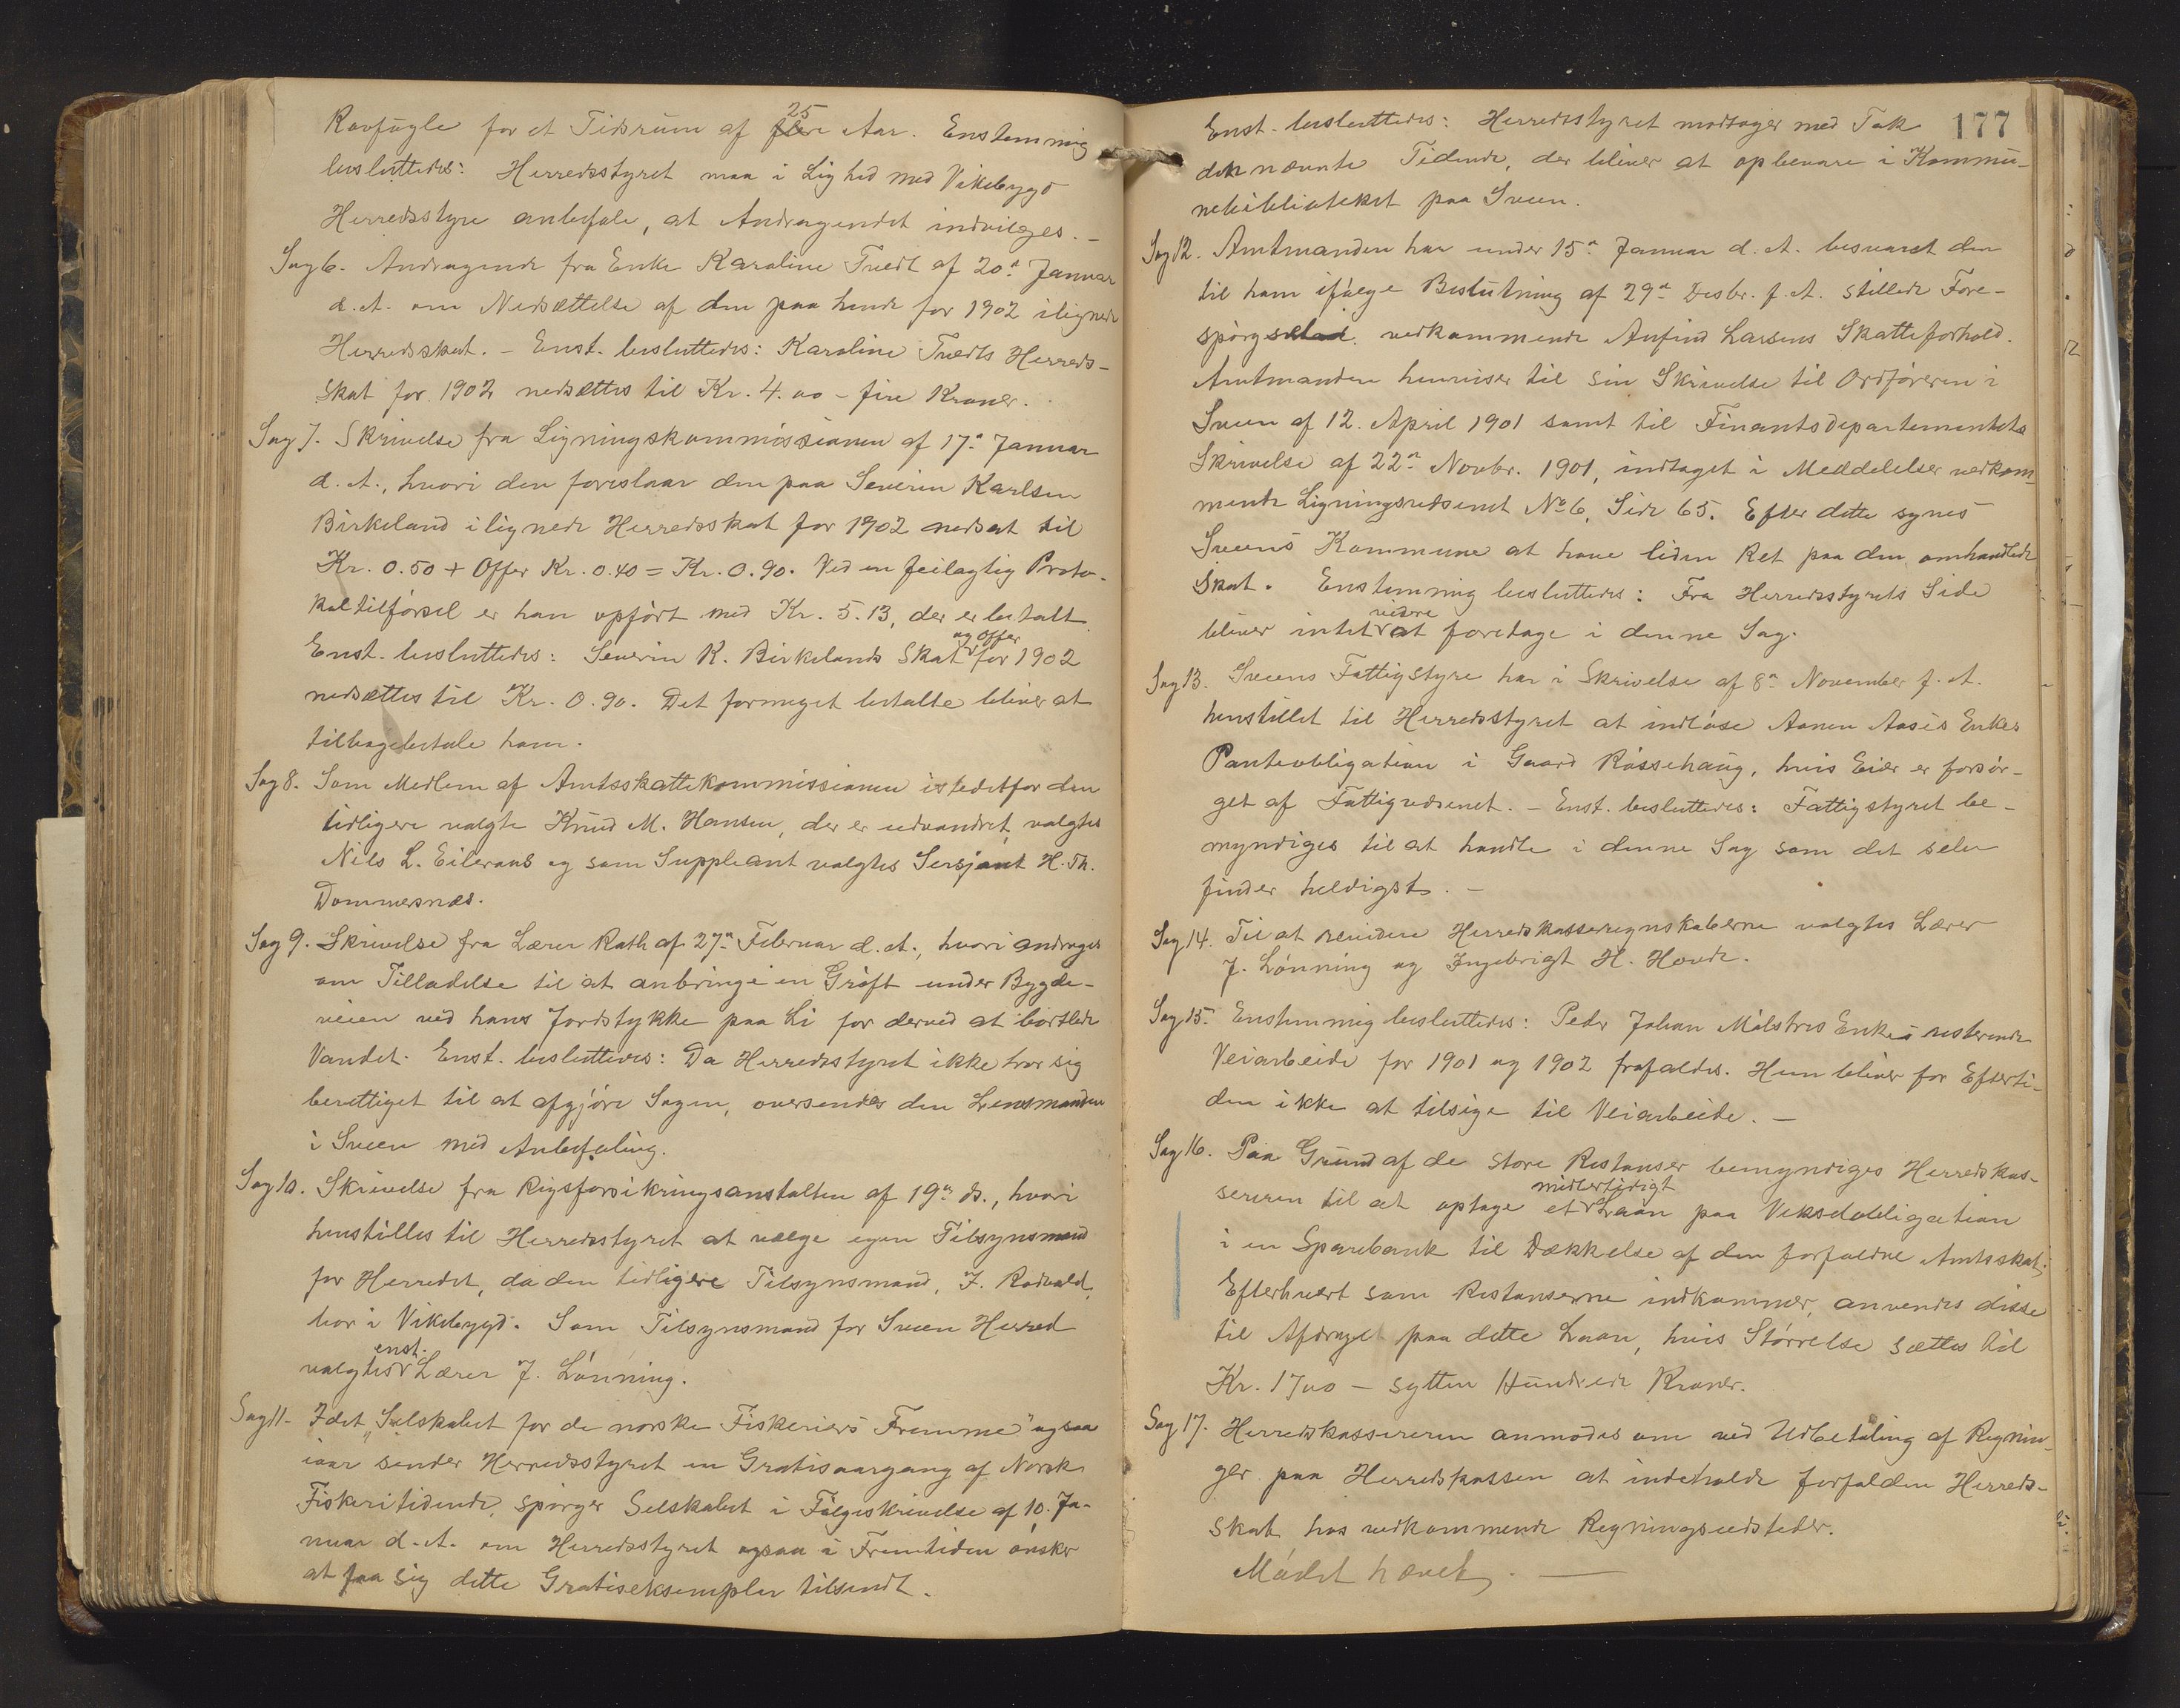 Rovfugle for et Tidsrum af 25 Aar. Enstemmig
besluttedes: Herredsstyret maa i Lighed med Vikebygd
Herredsstyre anbefale, at Andragendet indvilges. –
Sag 6. Andragende fra Enke Karoline Tvedt af 20de Januar
d. A. om Nedsættelse af den paa hende for 1902 ilignede
Herredsskat. – Enst. besluttedes: Karoline Tvedts Herreds-
skat for 1902 nedsættes til Kr. 4.00 – fire Kroner.
Sag 7. Skrivelse fra Ligningskommissionen af 17de Januar
d. A., hvori den foreslaar den paa Severin Karlsen
Birkeland ilignede Herredsskat for 1902 nedsat til
Kr. 0.50 + Offer Kr. 0.40 = Kr. 0.90. Ved en feilagtig Proto-
koltilførsel er han opført med Kr. 5.13, der er betalt.
Enst. besluttedes: Severin K. Birkelands Skat og Offer for 1902
nedsættes til Kr. 0.90. Det formeget betalte bliver at
tilbagebetale ham.
Sag 8. Som Medlem af Amtsskattekommissionen istedetfor den
tidligere valgte Knud M. Hansen, der er udvandret, valgtes
Nils L. Eileraas og som Suppleant valgtes Sersjant H. Th.
Dommersnæs.
Sag 9. Skrivelse fra Lærer Rath af 27de Februar d. A., hvori andrages
om Tilladelse til at anbringe en Grøft under Bygde-
veien ved hans Jordstykke paa Li for derved at bortlede
Vandet. Enst. besluttedes: Da Herredsstyret ikke tror sig
berettiget til at afgjøre Sagen, oversendes den Lensmanden
i Sveen med Anbefaling.
Sag 10. Skrivelse fra Rigsforsikringsanstalten af 19de ds., hvori
henstilles til Herredsstyret at vælge egen Tilsynsmand
for Herredet, da den tidligere Tilsynsmand, J. Rødvald,
bor i Vikebygd. Som Tilsynsmand for Sveen Herred
valgtes enst. Lærer J. Lønning.
Sag 11. Idet "Selskabet for de norske Fiskeriers Fremme" ogsaa
iaar sender Herredsstyret en Gratisaargang af Norsk
Fiskeritidende, spørger Selskabet i Følgeskrivelse af 10. Ja-
nuar d. A. om Herredsstyret ogsaa i Fremtiden ønsker
at faa sig dette Gratiseksemplar tilsendt.
177
Enst. besluttedes: Herredsstyret modtager med Tak
den nævnte Tidende, der bliver at opbevare i Kommu-
nebiblioteket paa Sveen.
Sag 12. Amtmanden har under 15de Januar d. A. besvaret den
til ham ifølge Beslutning af 29de Desbr. f. A. stillede Fore-
spørgsel vedkommende Anfind Larsens Skatteforhold.
Amtmanden henviser til sin Skrivelse til Ordføreren i
Sveen af 12. April 1901 samt til Finantsdepartementets
Skrivelse af 22de Novbr. 1901, indtaget i Meddelelser vedkom-
mende Ligningsvæsenet No 6, Side 65. Efter dette synes
Sveens Kommune at have liden Ret paa den omhandlede
Skat. Enstemmig besluttedes: Fra Herredsstyrets Side
bliver intet videre at foretage i denne Sag.
Sag 13. Sveens Fattigstyre har i Skrivelse af 8de November f. A.
henstillet til Herredsstyret at indløse Aanen Aases Enkes
Panteobligation i Gaard Røssehaug, hvis Eier er forsør-
get af Fattigvæsenet. – Enst. besluttedes: Fattigstyret be-
myndiges til at handle i denne Sag som det selv
finder heldigst. –
Sag 14. Til at revidere Herredskasseregnskaberne valgtes Lærer
J. Lønning og Ingebrigt H. Hovde.
Sag 15. Enstemmig besluttedes: Peder Johan Mølstres Enkes resterende
Veiarbeide for 1901 og 1902 frafaldes. Hun bliver for Efterti-
den ikke at tilsige til Veiarbeide. –
Sag 16. Paa Grund af de store Restanser bemyndiges Herredskas-
sereren til at optage et midlertidigt Laan paa Vekselobligation
i en Sparebank til Dækkelse af den forfaldne Amtsskat;
Efterhvert som Restanserne indkommer, anvendes disse
til Afdrag paa dette Laan, hvis Størrelse sættes til
Kr. 1700 – sytten Hundrede Kroner.
Sag 17. Herredskassereren anmodes om ved Udbetaling af Regnin-
ger paa Herredskassen at indeholde forfalden Herreds-
skat hos vedkommende Regningsudsteder.
Mødet hævet. —